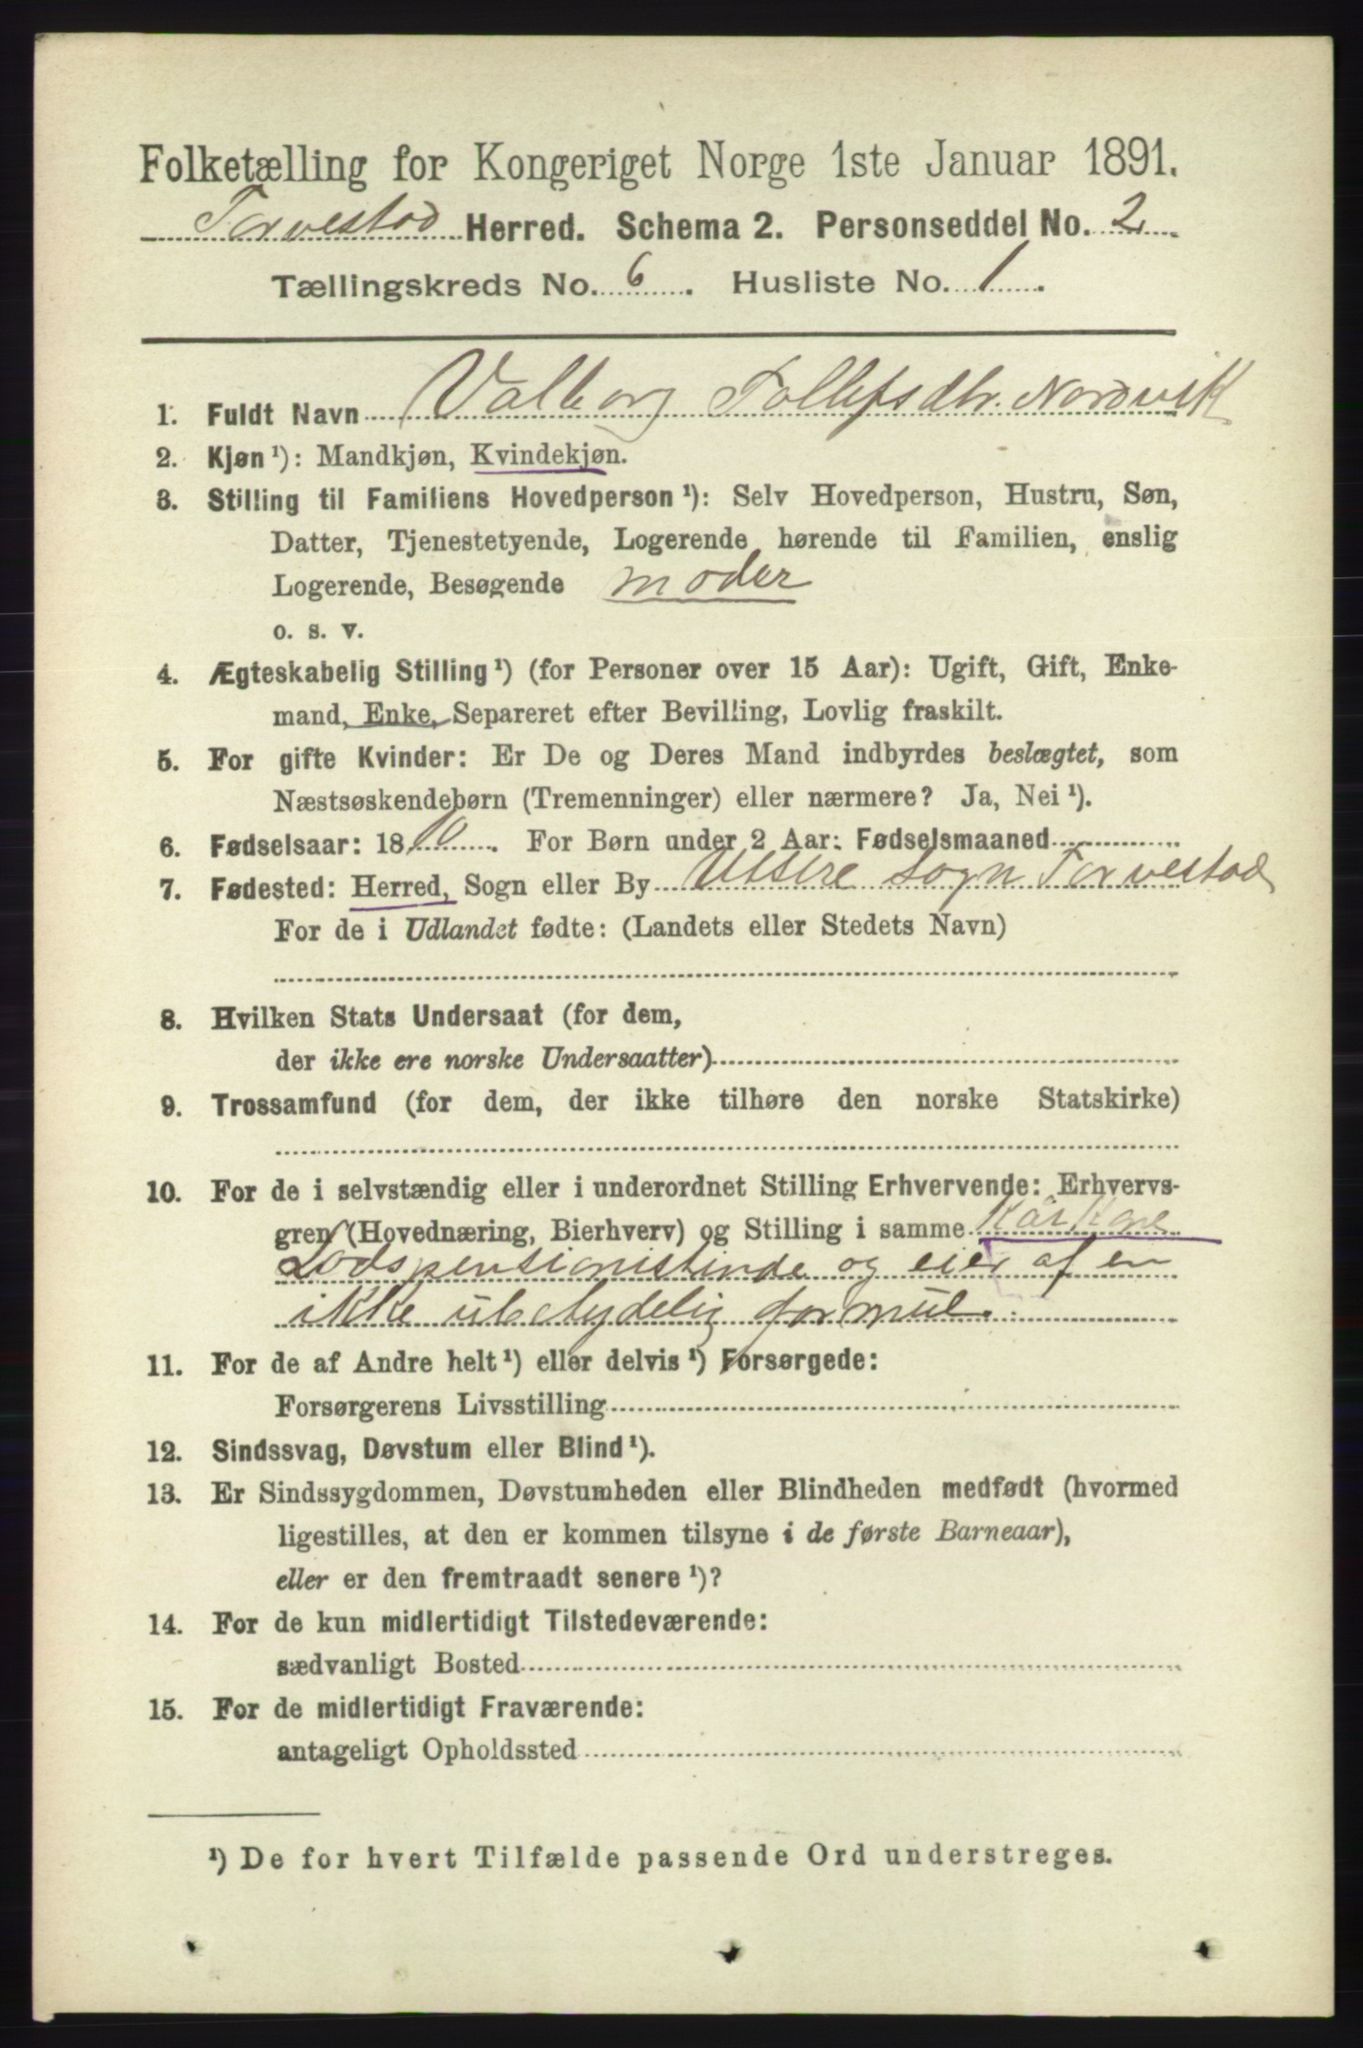 Folketælling for Kongeriget Norge 1ste Januar 1891.
Torvestad Herred. Schema 2. Personseddel No. 2
Tællingskreds No. 6. Husliste No. 1.
1. Fuldt Navn Valborg Tollefsdtr. Nordvik
2. Kjøn ¹): Mandkjøn, Kvindekjøn.
3. Stilling til Familiens Hovedperson ¹): Selv Hovedperson, Hustru, Søn,
Datter, Tjenestetyende, Logerende hørende til Familien, enslig
Logerende, Besøgende moder
o. s. v.
4. Ægteskabelig Stilling ¹) (for Personer over 15 Aar): Ugift, Gift, Enke-
mand, Enke, Separeret efter Bevilling, Lovlig fraskilt.
5. For gifte Kvinder: Er De og Deres Mand indbyrdes beslægtet, som
Næstsøskendebørn (Tremenninger) eller nærmere? Ja, Nei ¹).
6. Fødselsaar: 1810. For Børn under 2 Aar: Fødselsmaaned
7. Fødested: Herred, Sogn eller By Utsire Sogn Torvestad
For de i Udlandet fødte: (Landets eller Stedets Navn)
8. Hvilken Stats Undersaat (for dem,
der ikke ere norske Undersaatter)
9. Trossamfund (for dem, der ikke tilhøre den norske Statskirke)
10. For de i selvstændig eller i underordnet Stilling Erhvervende: Erhvervs-
gren (Hovednæring, Bierhverv) og Stilling i samme Kårkone
Lodspensionistinde og eier af en
ikke ubetydelig formue.
11. For de af Andre helt ¹) eller delvis ¹) Forsørgede:
Forsørgerens Livsstilling
12. Sindssvag, Døvstum eller Blind ¹).
13. Er Sindssygdommen, Døvstumheden eller Blindheden medfødt (hvormed
ligestilles, at den er kommen tilsyne i de første Barneaar),
eller er den fremtraadt senere ¹)?
14. For de kun midlertidigt Tilstedeværende:
sædvanligt Bosted
15. For de midlertidigt Fraværende:
antageligt Opholdssted
¹) De for hvert Tilfælde passende Ord understreges.